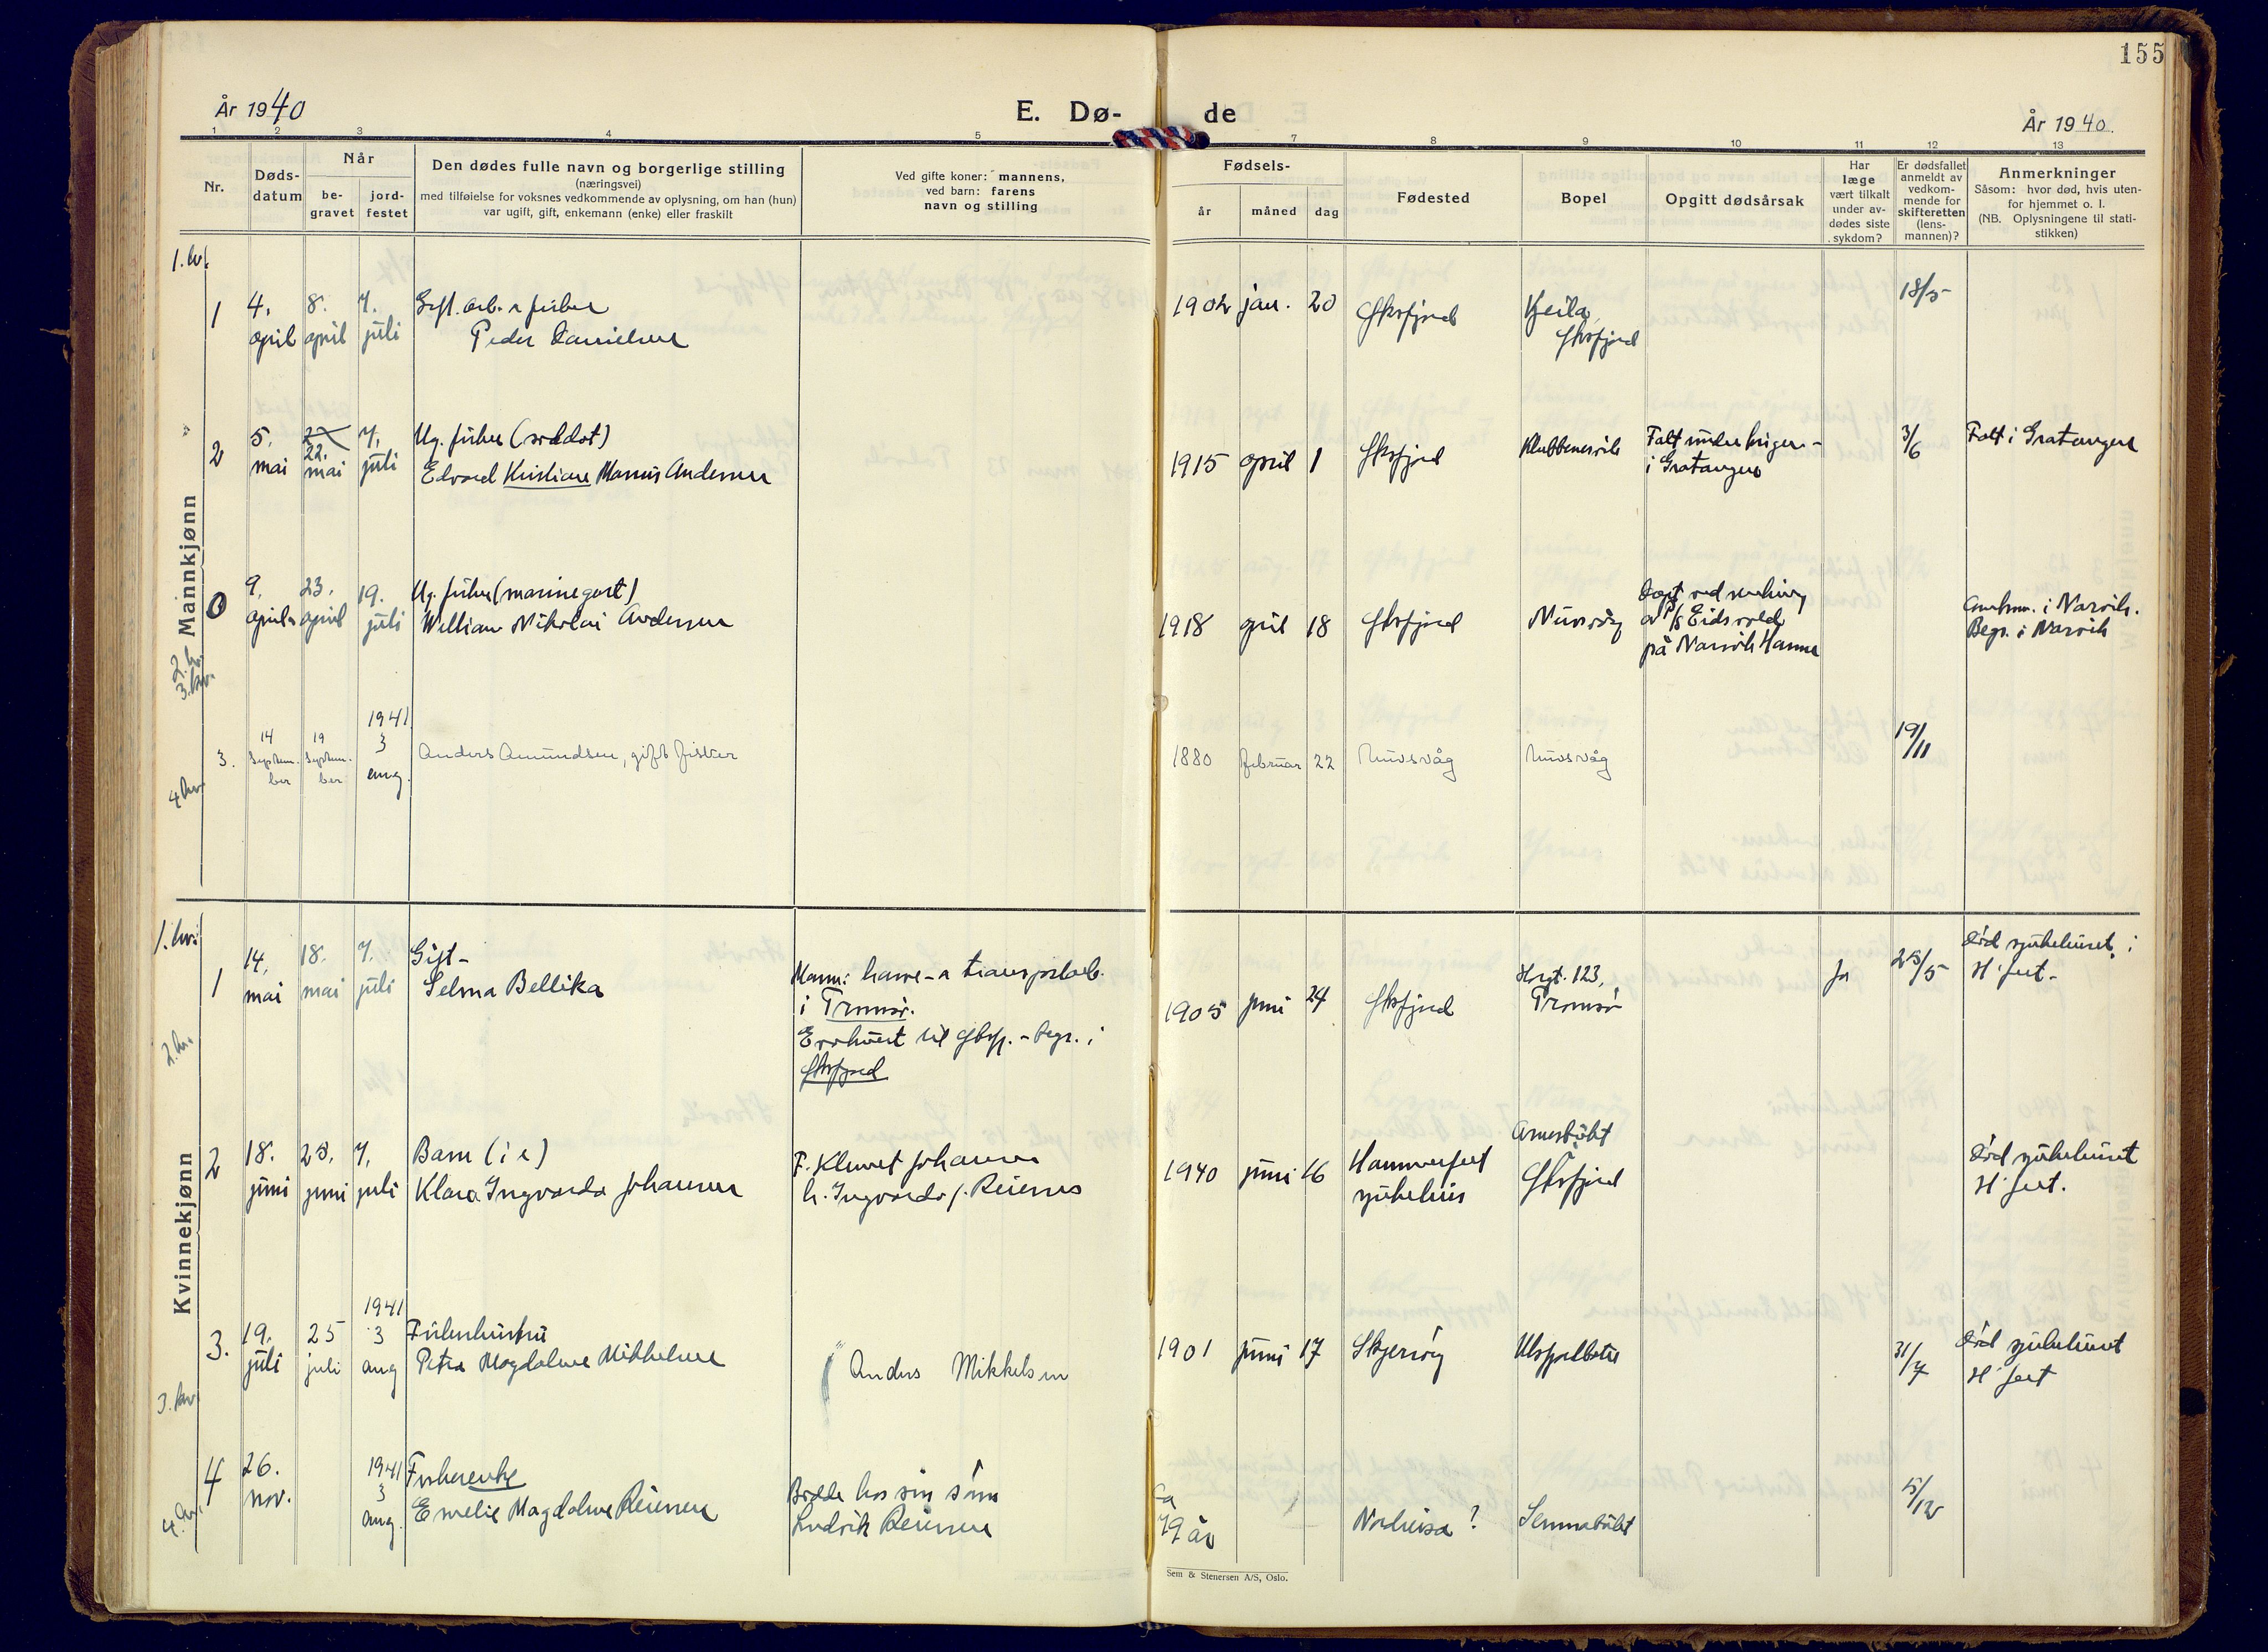 155
År 1940
E. Dø-
de
År 1940.
1 2 3 4 5 7 8 9 10 11 12 13
Nr.
Døds-
datum
Når
be-
gravet
jord-
festet
Den dødes fulle navn og borgerlige stilling
(næringsvei)
med tilføielse for voksnes vedkommende av oplysning, om han (hun)
var ugift, gift, enkemann (enke) eller fraskilt
Ved gifte koner: mannens,
ved barn: farens
navn og stilling
Fødsels-
år
måned
dag
Fødested
Bopel
Opgitt dødsårsak
Har
læge
vært tilkalt
under av-
dødes siste
sykdom?
Er dødsfallet
anmeldt av
vedkom-
mende for
skifteretten
(lens-
mannen)?
Anmerkninger
Såsom: hvor død, hvis uten-
for hjemmet o. l.
(NB. Oplysningene til stati-
stikken)
Mannkjønn
1. kv.
1
4. april
8. april
7. juli
Gift. arb. & fisker
Peder Danielsen
1902 jan. 20
Øksfjord
Øksfjord
18/5
2
5. mai
22. mai
7. juli
Ug. fisker (soldat)
Edvard Kristian Marius Andersen
1915 april 1
Øksfjord
Klubbenesvik
Falt under krigen
i Gratangen
3/6
Falt i Gratangen
0
9. april
23. april
19. juli
Ug. fisker (marinegast)
William Nikolai Andersen
1918 april 18
Øksfjord
Nuvsvåg
ved senkning
av P/S Eidsvold
på Narvik Havn
i Narvik.
Begr. i Narvik
2. kv.
3. kv.
3.
14 september
19 september
1941
3 aug.
Anders Amundsen, gift fisker
1880 februar 22
Nuvsvåg
Nuvsvåg
19/11
4. kv.
Kvinnekjønn
1. kv.
1
14. mai
18. mai
7. juli
Gift -
Selma Bellika
Mann: havne- & transportarb.
i Tromsø.
til Øksfj. - begr. i
Øksfjord
1905 juni 24
Øksfjord
123,
Tromsø
Ja
25/5
død sjukehuset i
H'fest.
2. kv.
2
18. juni
23. juni
7. juli
Barn (i e)
Klara Ingvarda Johansen
F. Klemet Johansen
h. Ingvarda f. Reiersen
1940 juni 16
Hammerfest
sjukehus
Arnesbukt
Øksfjord
død sjukehuset
H'fest.
3.
19. juli
25 juli
1941
3 aug
Fiskerhustru
Petra Magdalene Mikkelsen
Anders Mikkelsen
1901 juni 17
Skjervøy
Ulsfjordbotn
31/7
død sjukehuset
H'fest
3. kv
4
26. nov.
1941
3 aug.
Fiskerenke
Emelie Magdalene Reiersen
Bodde hos sin sønn
Ludvik Reiersen
ca
79 år
Nordreisa ?
15/12
4. kv.
Sem & Stenersen A/S, Oslo.